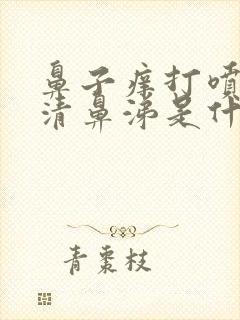 鼻子痒打喷
清鼻涕是什
青枣枝